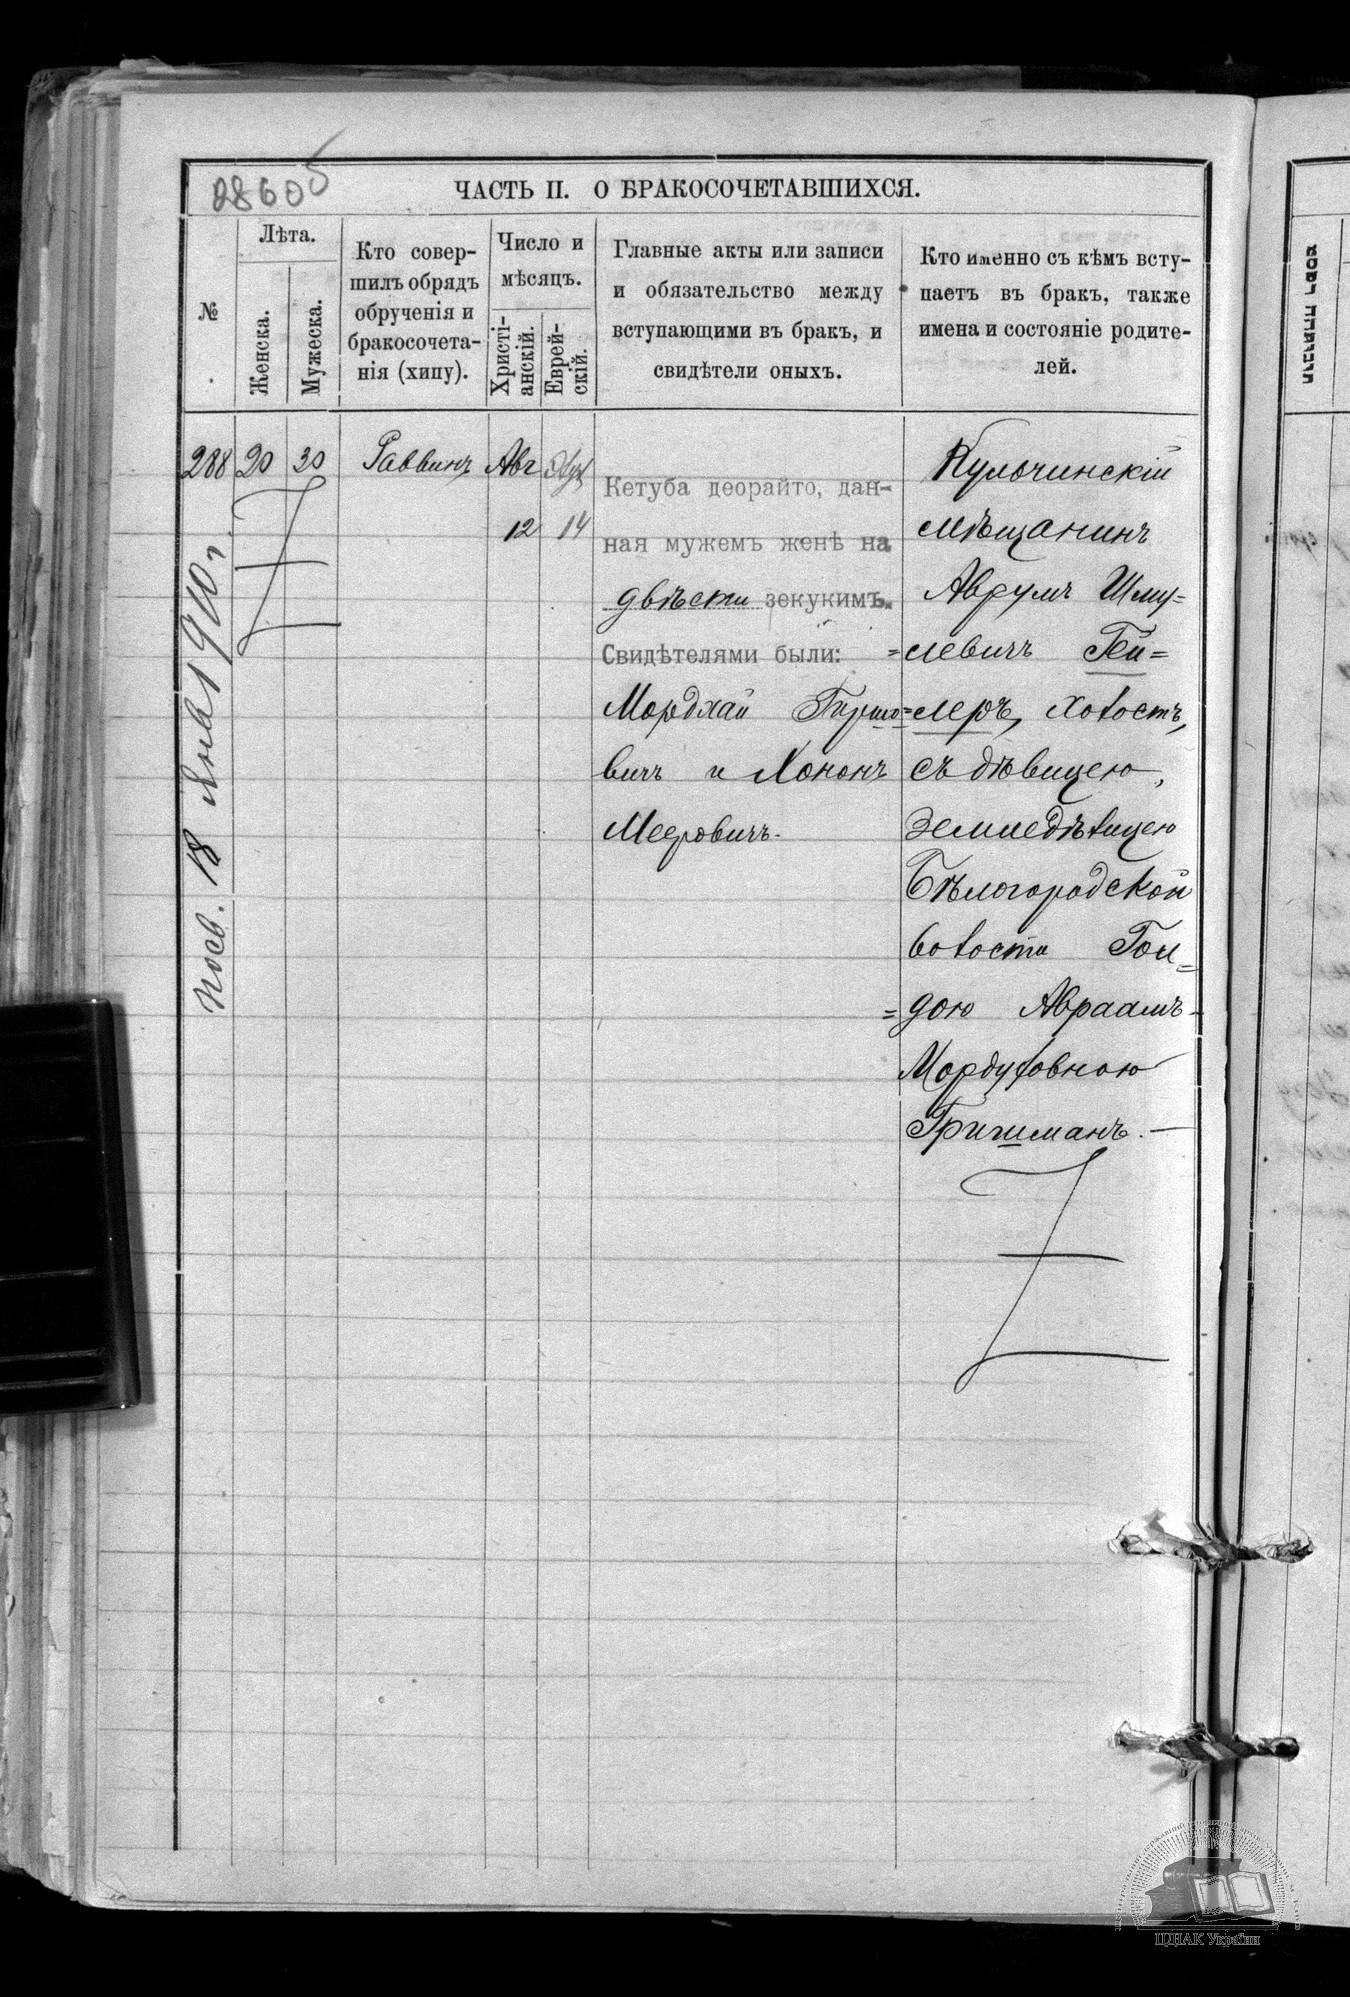 28605
ЧАСТЬ II. О БРАКОСОЧЕТАВШИХСЯ.
№
Лѣта.
Женска.
Мужеска.
Кто совер-
шилъ обрядъ
обрученія и
бракосочета-
нія (хипу).
Число и
мѣсяцъ.
Христі-
анскій.
Еврей-
скій.
Главные акты или записи
и обязательство между
вступающими въ бракъ, и
свидѣтели оныхъ.
Кто именно съ кѣмъ всту-
паетъ въ бракъ, также
имена и состояніе родите-
лей.
288
20
30
Раввинъ
Авг
12
14
Кетуба деорайто, дан-
ная мужемъ женѣ на
двѣсти зекукимъ.
Свидѣтелями были:
Мордхай Гиршо=
вичъ и Хононъ
Мееровичъ.
Кульчинскій
мѣщанинъ
Аврумъ Шму=
=левичъ Гей=
=леръ, холостъ,
съ дѣвицею,
Землед&#1123;лицею
Бѣлогородской
волости Гол=
=дою Авраамъ-
Мордуховною
Григшманъ. —
посв. 18 Янв 1910 г.
ЦДІАК України